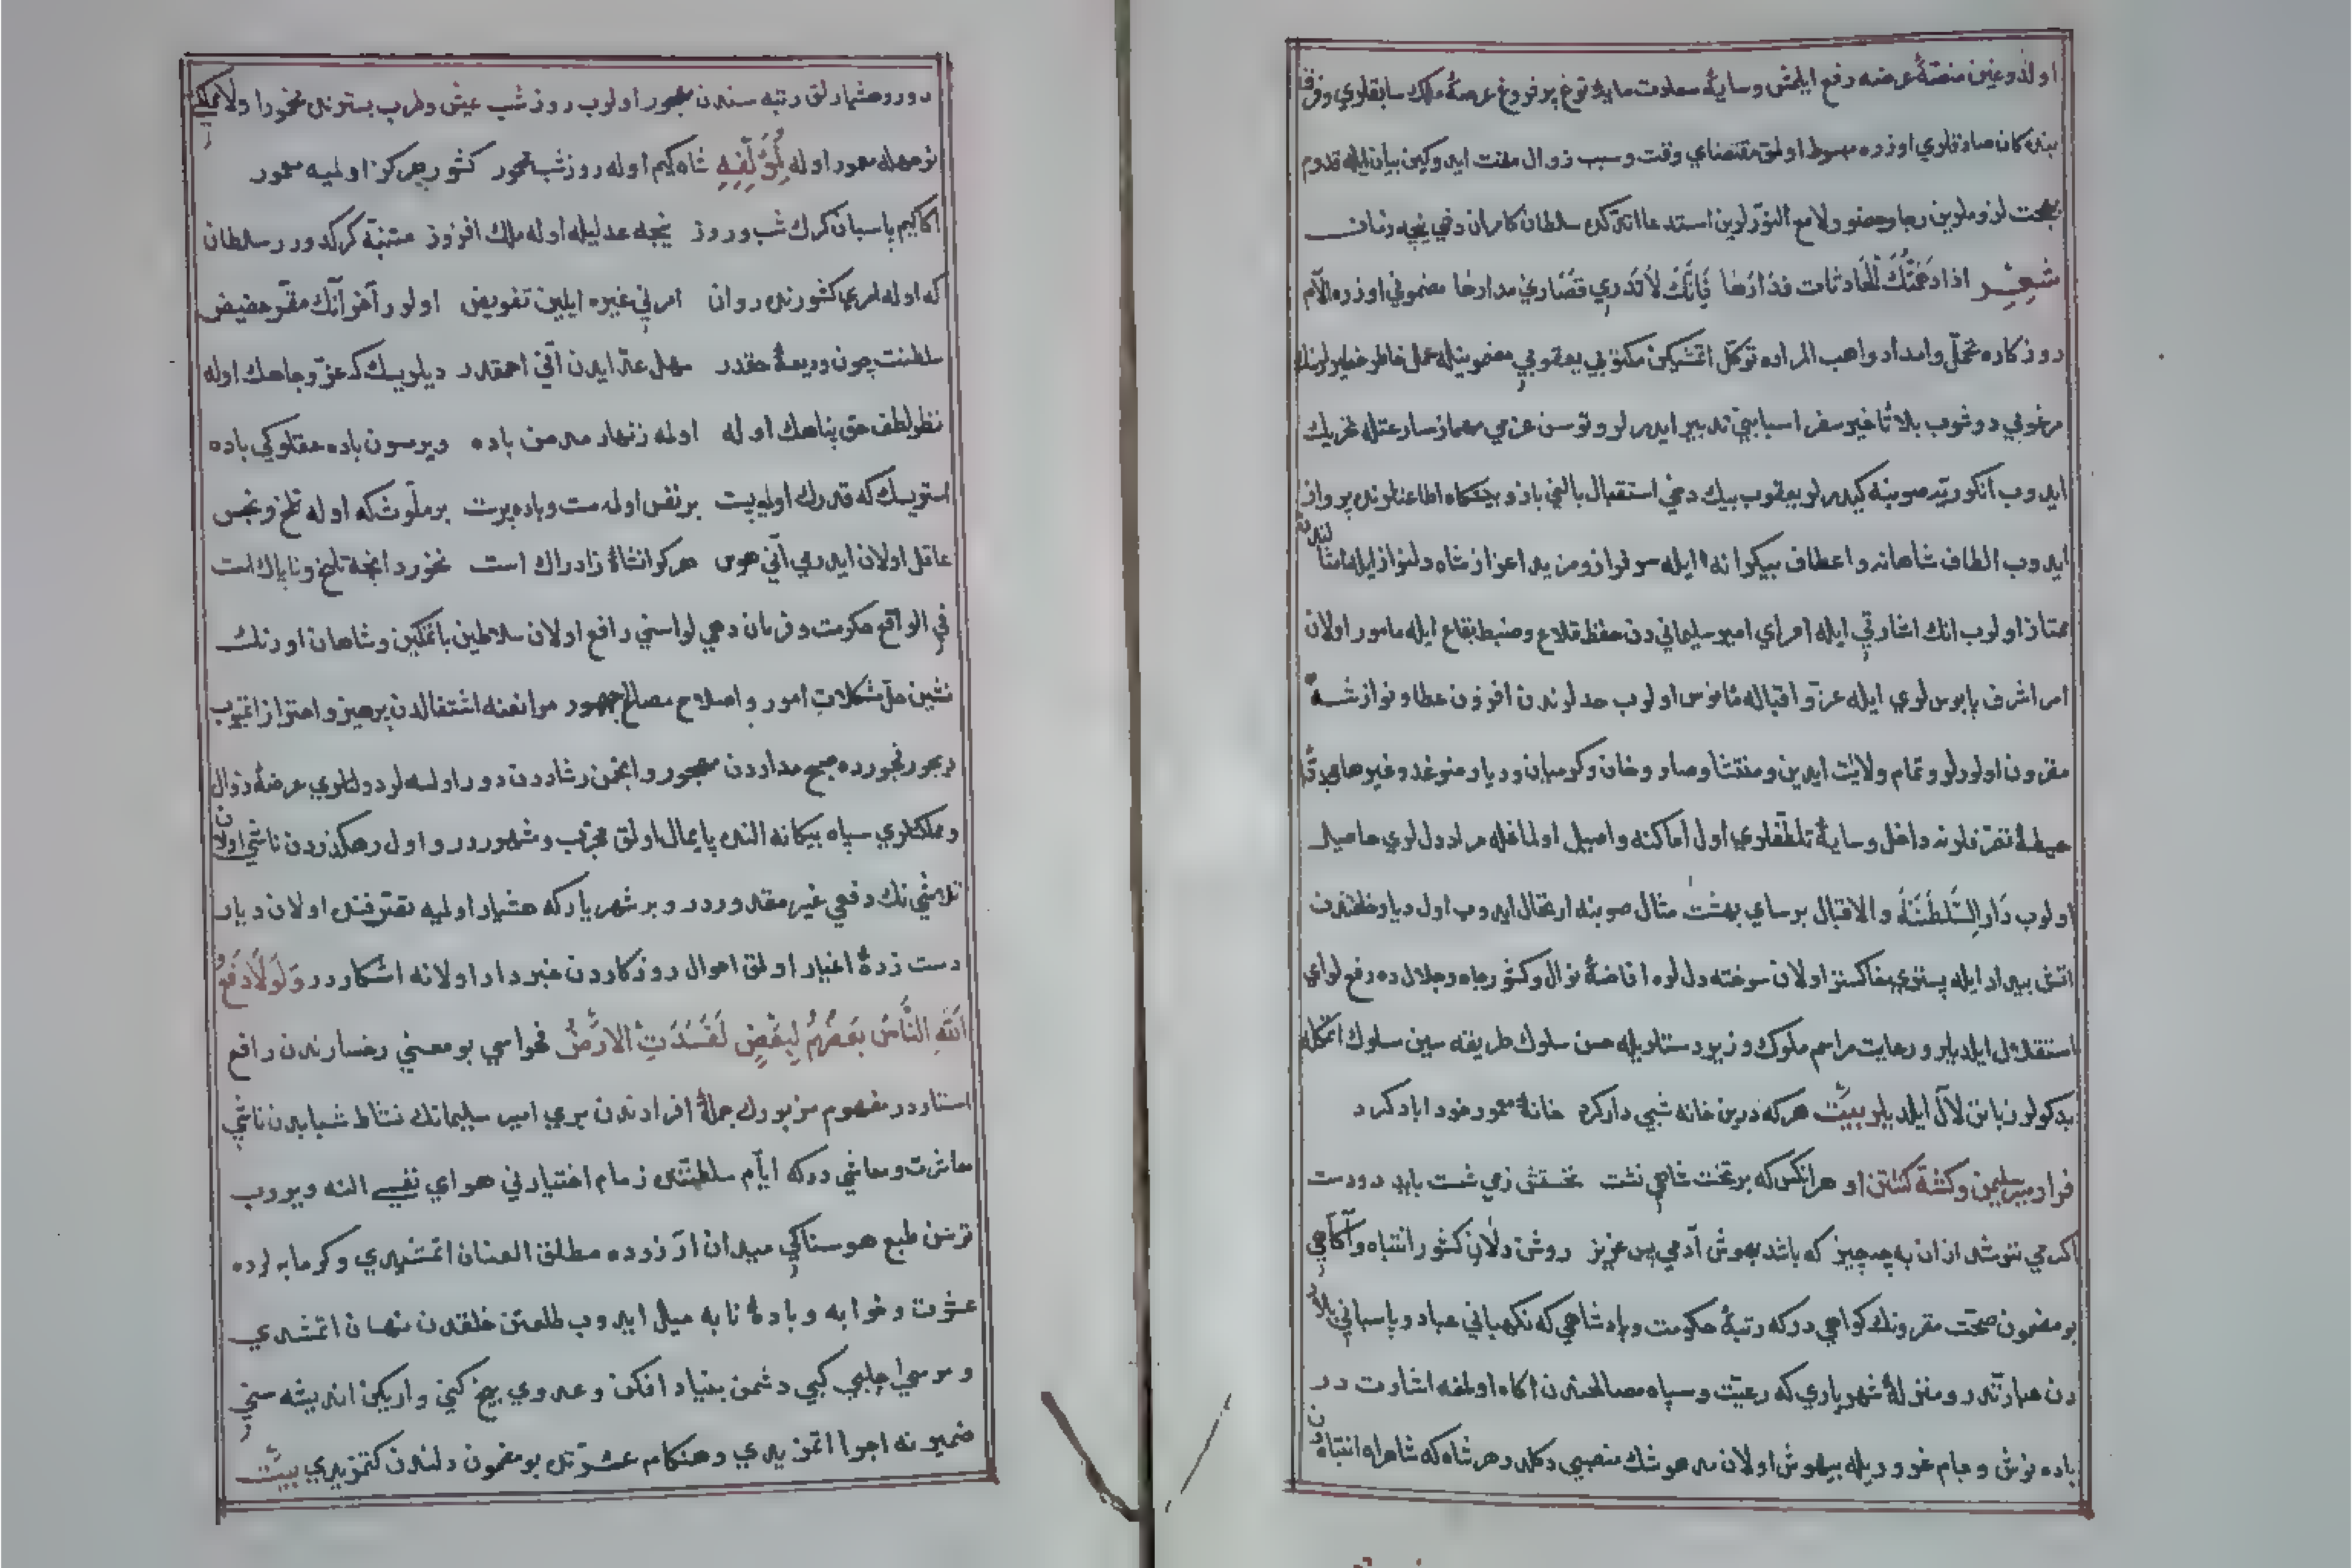 اولدوغین منصهٔ عرضه رفع ایلمش وسایهٔ سعادت مایهٔ توغ پر فروغ عرصهٔ ملک سابقلری
کان صادقلری اوزره مبسوط اولمق مقتضای وقت وسبب زوال مقت ایدوکین بیان ایله قدوم
بهجت لزوملرین رجا وحضور لامع النورلرین استدعا اتدکده سلطان کامران دخی نیجه زمان
شعر اذا دهتک الحادثات فدارها فانک لا تدری قصاری مدارها مضمونی اوزره آلام
روزکاره تحمل وامداد واهب المراده توکل اتمشیکن مکتوب یعقوبی مضمونیله عمل خاطر خطیرلرینک
مرغوبی دوشوب بلا تاخیر سفر اسبابین تدبیر ایدرلر وتوسن عزمی مهماز سارعتله تحریک
ایدوب انکوریه صوبنه کیدرلر یعقوب بیک دخی استقبال بالنی باز وبیشکاه اطاعتلرنده پرواز
ایدوب الطاف شاهانه واعطاف بیکرانه ایله سرفراز ومزید اعزاز شاه دلنواز ایله
ممتاز اولوب انک اشارتی ایله امرای امیر سلیمانی دن حفظ قلاع وضبط بقاع ایله مامور اولان
امرا شرف پابوسلری ایله عز واقباله مانوس اولوب حدلرندن افزون عطا ونوازشه
مقرون اولورلر وتمام ولایت ایدین ومنتشا وصاروخان وکرمیان ودیار منوغد وغیرهای
حیطهٔ تصرفلرنه داخل وسایهٔ تلطفلری اول اماکنه واصیل اولماغله مراد دللری حاصل
اولوب دار السلطنة والاقبال برسای بهشت مثال صوبنه ارتحال ایدوب اول دیار خلقندن
اتش بیداد ایله پستوی خاکستر اولان سوخته دللره افاضهٔ نوال وکشور جاه وجلال ده رفع لوای
استقلال ایلدیلر ورعایت مراسم ملوک وزیردستلریله حسن سلوک طریقه سین مسلوک اتمکله
بدکولر زبانن لال ایلدیلر بیت هر که درین خانه شبی داد کرد خانهٔ معمور خود اباد کرد
فرار میر سلیمن وکشته کشتن او هر انکس که بر تخت شاهی نشت نخستش زمی شست باید دو دست
اکر می ننوشد ازان به چه چیز که باشد بهوش آدمی بس عزیز روشن دلان کشور انتباه وآکاهی
بو مضمون صحت مقرونک کواهی درکه رتبهٔ حکومت وپادشاهی که نکهبانی عباد وپاسبانی بلاد
دن عبارتدر ومنزلهٔ شهریاری که رعیت وسپاه مصالحندن اکاه اولمغه اشارت در
باده نوش وجام غرور ایله بیهوش اولان مدهوشک منصبی دکلدر هر شاه که شاهراه انتباه دن
دور وهشیارلق رتبه سندن مهجور اولوب روز شب عیش وطرب بسترنده مخمور اولا
نوعهله معمور اوله لمؤلفه شاه کیم اوله روز شب مخمور کشور هرکز اولمیه معمور
اکا کیم پاسبان کرک شب وروز نیجه عدلیله اوله ملک افروز متنبه کرکدورر سلطان
که اوله امری کشورنده روان امرنی غیره ایلین تفویض اولور آخر آنک مقر حضیض
سلطنت چون ودیعهٔ حقدر سهل عد ایدن آنی احمقدر دیلریسک که عز وجاهک اوله
نظر لطف حق پناهک اوله اولمه زنهار مدمن باده ویرمسون باده عقلوکی باده
استریسک که قدرک اولمیه پست بر نفس اولمه مست وباده پرست بر ملوثکه اوله تلخ ونجس
عاقل اولان ایدرمی آنی هوس هر کرا نشاهٔ زادراک است نخورد انچه تلخ وناپاک است
فی الواقع حکومت وفرمان دهی لواسنی رافع اولان سلاطین باتمکین وشاهان اورنک
نشین حل مشکلات امور واصلاح مصالح جمهور مرافعنه اشتغالدن پرهیز واحتراز اتمیوب
دیجور فجورده صبح مداردن مهجور وانجمن رشاددن دور اولسه لر دولتلری عرضهٔ زوال
ومملکتلری سپاه بیکانه النده پایمال اولمق مجرب ومشهوردر واول رهکذردن ناشی اولان
تلاشی نک دفعی غیر مقدوردر وبر شهریار که هشیار اولمیه تصرفنده اولان دیار
دست زدهٔ اغیار اولمق احوال روزکاردن خبردار اولانه اشکاردر ولولا دفع
الله الناس بعضهم لبعض لفسدت الارض فحواسی بو معنی رخسارندن رافع
استاردر مفهوم مزبورک جملهٔ افرادندن بری امیر سلیمانک نشاط شبابدن ناشی
معاشرت ومعاشی درکه ایام سلطنتنده زمام اختیارنی هوای نفسی النه ویروب
توسن طبع هوسناکی میدان آرزوده مطلق العنان اتمشیدی وکرمابه لرده
عشرت وخوابه وبادهٔ نابه میل ایدوب طلعتن خلقدن نهان اتمشدی
وموسی چلبی کبی دشمن بنیاد افکن وعدوی بیخ کنی واریکن اندیشه سنی
ضمیرنه اجرا اتمزیدی وهنکام عشرتده بو مضمون دلندن کتمزیدی بیت